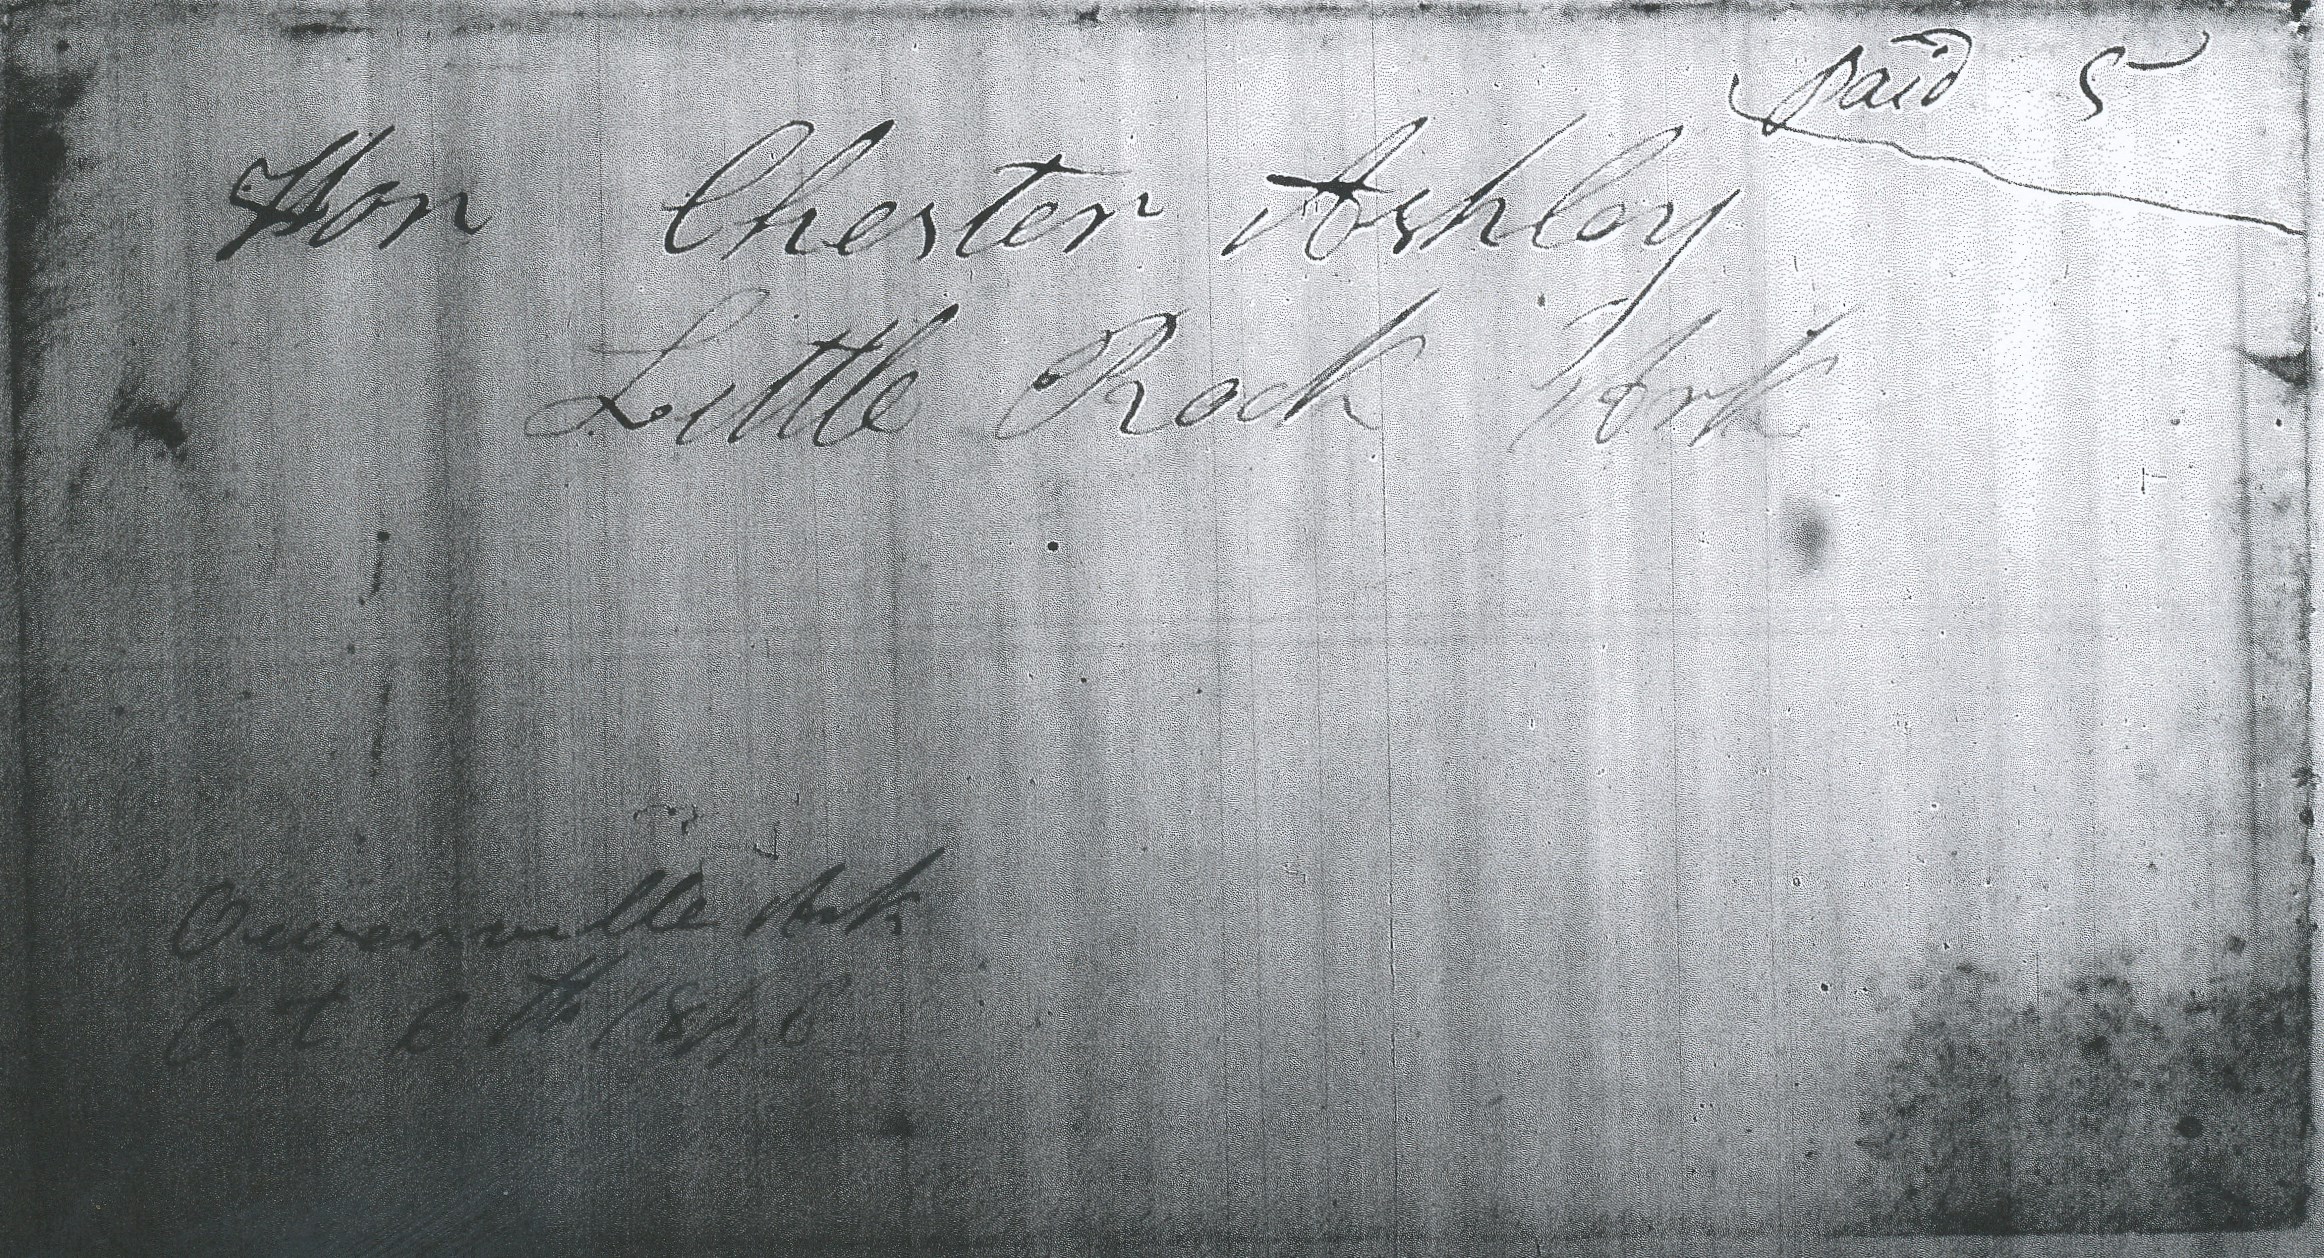 paid 5
Hon Chester Ashley
Little Rock Ark
Owenville Ark
Oct 6th 1846